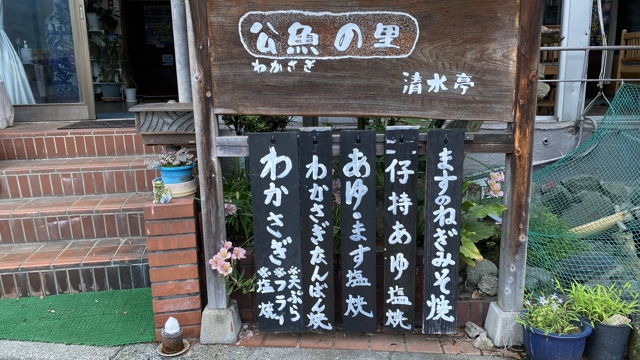 公魚の里
わかさぎ
清水亭
わかさぎ
※天ぷら
※フライ
※塩焼
わかさぎなんばん焼
あゆ・ます塩焼
子持あゆ塩焼
ますのねぎみそ焼